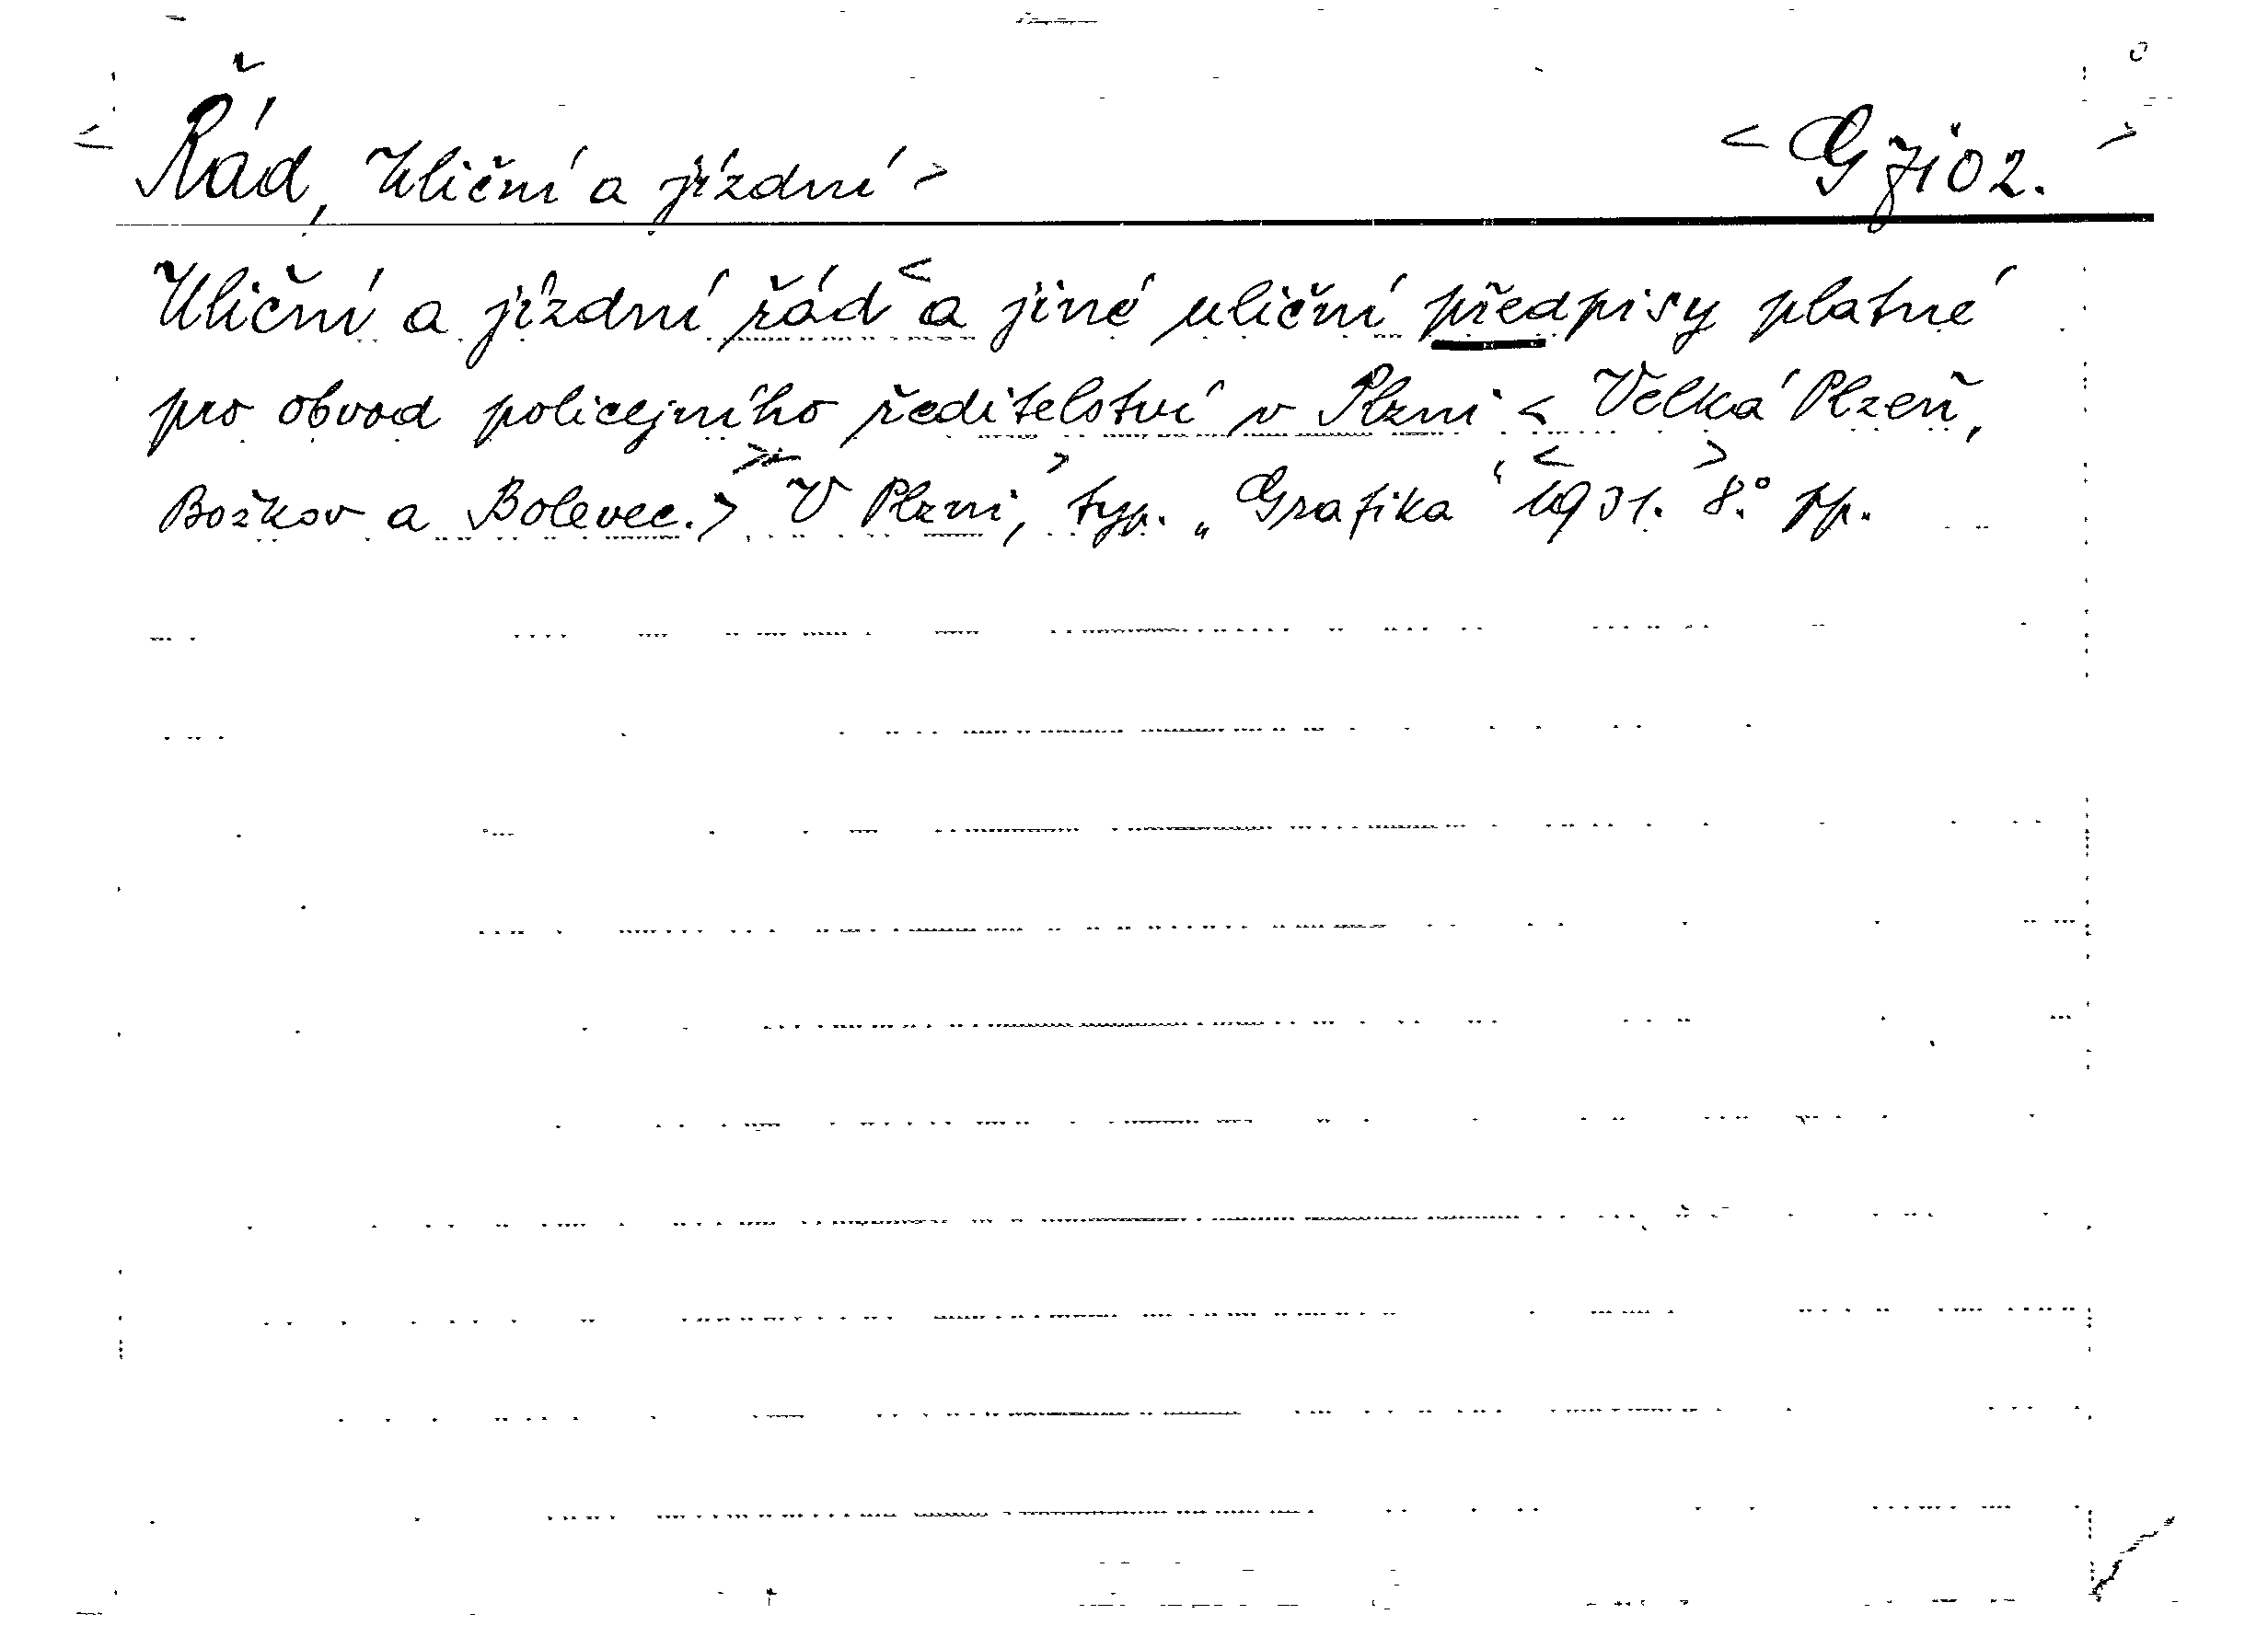 < Řád, Uliční a jízdní > < G 7102. >
Uliční a jízdní řád < a jiné uliční předpisy platné
pro obvod policejního ředitelství v Plzni < Velká Plzeň,
Božkov a Bolevec. > V Plzni, typ. „Grafika“ 1931. 8.°